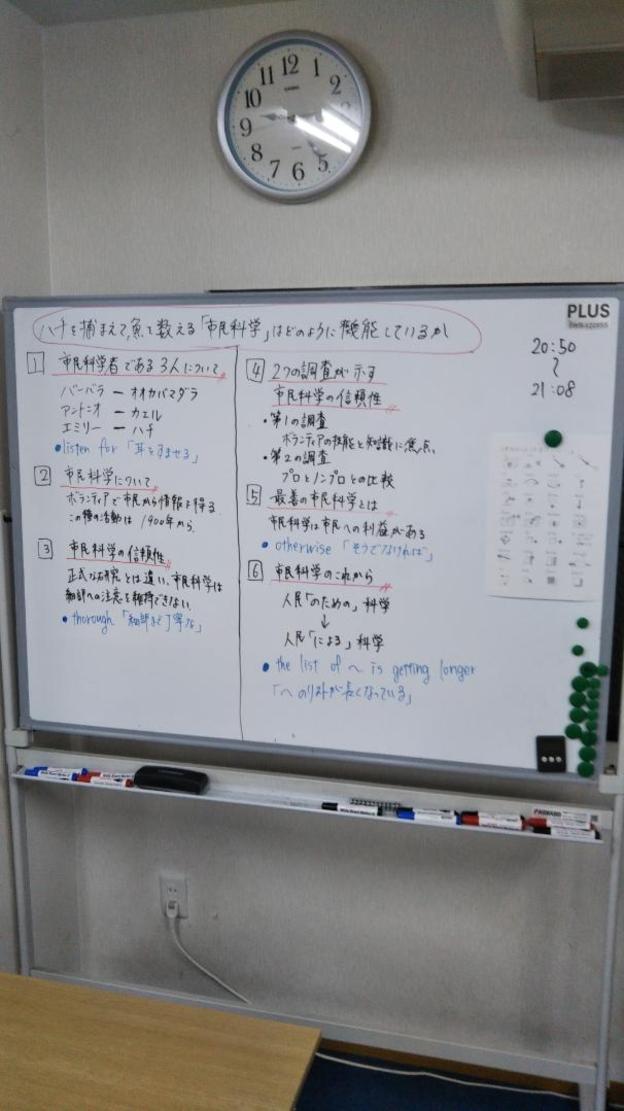 12
1
2
4
5
6
7
8
9
10
11
PLUS
ハチを捕まえて、魚を数える「市民科学」はどのように機能しているか
20:50
〜
21:08
1 市民科学者である3人について
バーバラ ー オオカバマダラ
アントニオ ー カエル
エミリー ー ハチ
•listen for 「耳をすませる」
2 市民科学について
ボランティアで市民から情報を得る
この種の活動は 1900年から.
3 市民科学の信頼性
正式な研究とは違い、市民科学は
細部への注意を維持できない
•thorough 「細部まで丁寧な」
4 2つの調査が示す
市民科学の信頼性
•第1の調査
ボランティアの技能と知識に焦点.
•第2の調査
プロとノンプロとの比較
5 最善の市民科学とは
市民科学は市民への利益がある
• otherwise 「そうでなければ」
6 市民科学のこれから
人民「のための」科学
↓
人民「による」科学
• the list of 〜 is getting longer
「〜のリストが長くなっている」